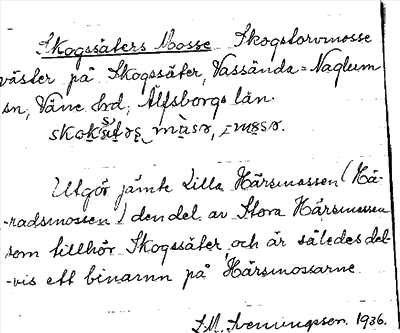 Skogssäters Mosse Skogstorvmosse
väster på Skogssäter, Vassända=Naglum
sn, Väne hd, Älfsborgs län.
Utgör jämte Lilla Härsmossen (Hä-
-radsmossen) den del av Stora Härsmossen
som tillhör Skogssäter och är således del-
-vis ett binamn på Härsmossarne.
1936.